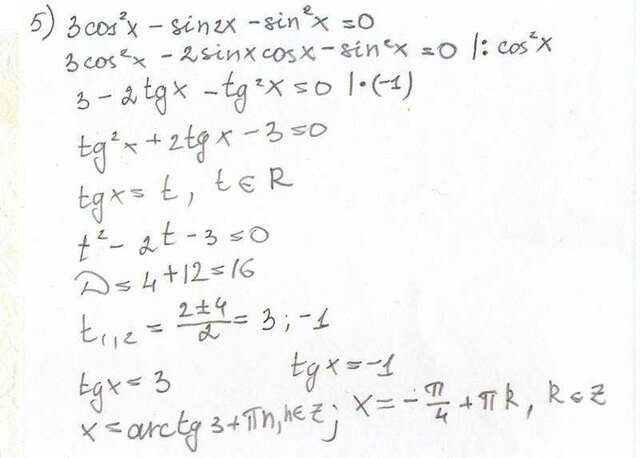 5) 3cos²x - sin2x - sin²x = 0
3cos²x - 2sinxcosx - sin²x = 0 |: cos²x
3 - 2tgx - tg²x = 0 |·(-1)
tg²x + 2tgx - 3 = 0
tgx = t, t ∈ R
t² - 2t - 3 = 0
D = 4 + 12 = 16
t₁,₂ = (2±4)/2 = 3; -1
tgx = 3 tgx = -1
x = arctg 3 + πn, n∈Z; x = -π/4 + πk, k∈Z